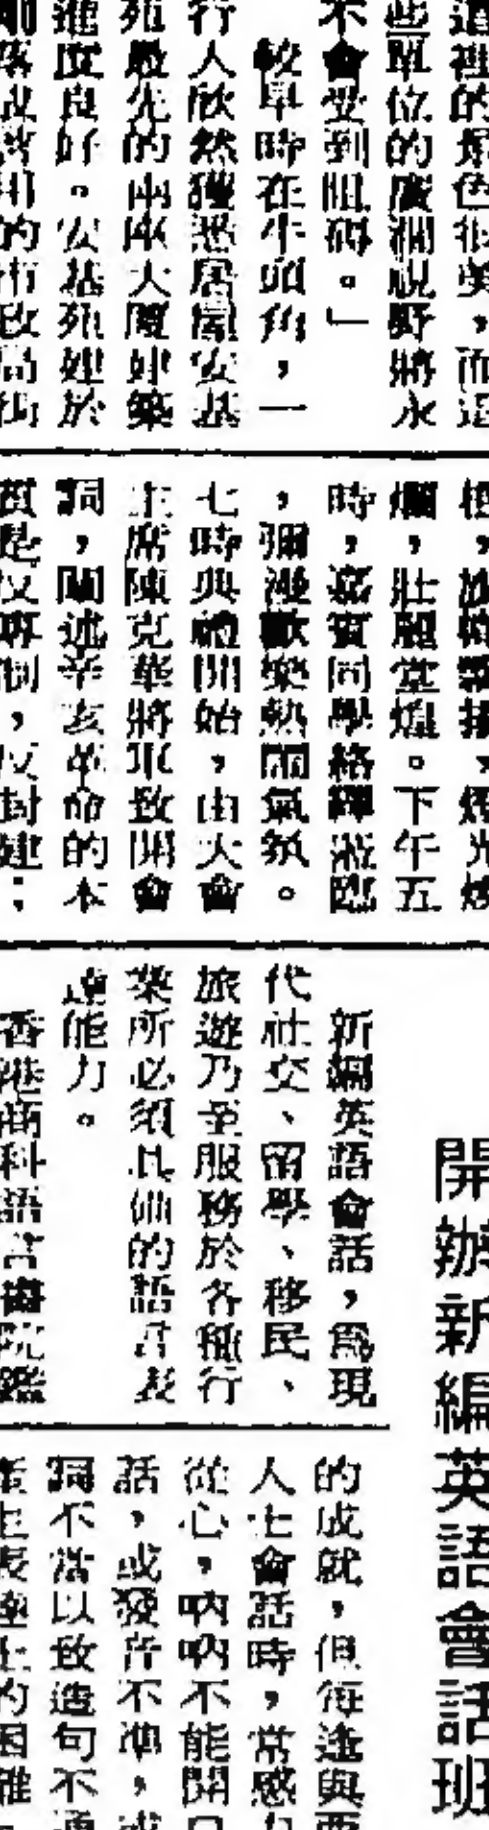 這裡的景色很美，而這
些單位的廣濶視野將永
不會受到阻碍。」
較早時在牛頭角，一
行人欣然獲悉居屋安基
苑最先的兩座大廈建築
進度良好。安基苑建於
剛落成啓用的市政局街
爛，壯麗堂煌。下午五
時，嘉賓同學絡繹涖臨
，彌漫歡樂熱鬧氣氛。
七時典禮開始，由大會
主席陳克華將軍致開會
詞，闡述辛亥革命的本
質是反專制，反封建；
開辦新編英語會話班
新編英語會話，爲現
代社交、留學、移民、
旅遊乃至服務於各種行
業所必須具備的語言表
達能力。
香港商科語言書院鑑
的成就，但每逢與西
人士會話時，常感力
從心，吶吶不能開口
話，或發音不準，或
詞不當以致造句不通